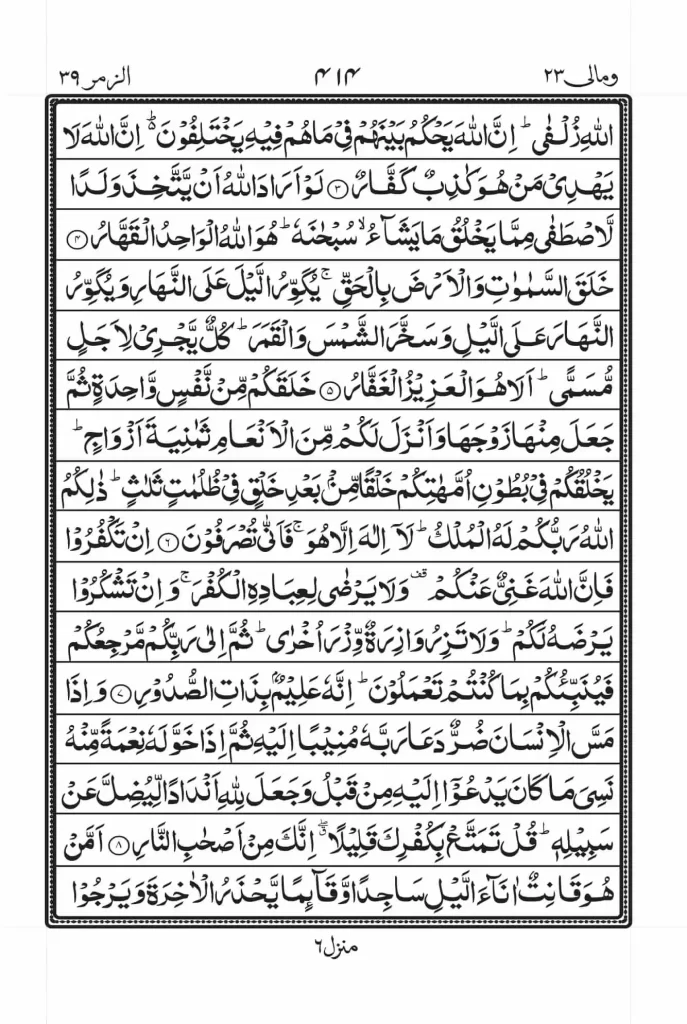 ومالى ٢٣ ٤١٤ الزمر ٣٩
اللّٰهِ زُلْفٰى ؕ اِنَّ اللّٰهَ يَحْكُمُ بَيْنَهُمْ فِىْ مَا هُمْ فِيْهِ يَخْتَلِفُوْنَ ۬ؕ اِنَّ اللّٰهَ لَا
يَهْدِىْ مَنْ هُوَ كٰذِبٌ كَفَّارٌ ﴿۳﴾ لَوْ اَرَادَ اللّٰهُ اَنْ يَّتَّخِذَ وَلَدًا
لَّاصْطَفٰى مِمَّا يَخْلُقُ مَا يَشَآءُ ۙ سُبْحٰنَهٗ ؕ هُوَ اللّٰهُ الْوَاحِدُ الْقَهَّارُ ﴿۴﴾
خَلَقَ السَّمٰوٰتِ وَالْاَرْضَ بِالْحَقِّ ۚ يُكَوِّرُ الَّيْلَ عَلَى النَّهَارِ وَيُكَوِّرُ
النَّهَارَ عَلَى الَّيْلِ وَسَخَّرَ الشَّمْسَ وَالْقَمَرَ ؕ كُلٌّ يَّجْرِىْ لِاَجَلٍ
مُّسَمًّى ؕ اَلَا هُوَ الْعَزِيْزُ الْغَفَّارُ ﴿۵﴾ خَلَقَكُمْ مِّنْ نَّفْسٍ وَّاحِدَةٍ ثُمَّ
جَعَلَ مِنْهَا زَوْجَهَا وَاَنْزَلَ لَكُمْ مِّنَ الْاَنْعَامِ ثَمٰنِيَةَ اَزْوَاجٍ ؕ
يَخْلُقُكُمْ فِىْ بُطُوْنِ اُمَّهٰتِكُمْ خَلْقًا مِّنْۢ بَعْدِ خَلْقٍ فِىْ ظُلُمٰتٍ ثَلٰثٍ ؕ ذٰلِكُمُ
اللّٰهُ رَبُّكُمْ لَهُ الْمُلْكُ ؕ لَاۤ اِلٰهَ اِلَّا هُوَ ۚ فَاَنّٰى تُصْرَفُوْنَ ﴿۶﴾ اِنْ تَكْفُرُوْا
فَاِنَّ اللّٰهَ غَنِىٌّ عَنْكُمْ ۟ وَلَا يَرْضٰى لِعِبَادِهِ الْكُفْرَ ۚ وَاِنْ تَشْكُرُوْا
يَرْضَهُ لَكُمْ ؕ وَلَا تَزِرُ وَازِرَةٌ وِّزْرَ اُخْرٰى ؕ ثُمَّ اِلٰى رَبِّكُمْ مَّرْجِعُكُمْ
فَيُنَبِّئُكُمْ بِمَا كُنْتُمْ تَعْمَلُوْنَ ؕ اِنَّهٗ عَلِيْمٌۢ بِذَاتِ الصُّدُوْرِ ﴿۷﴾ وَاِذَا
مَسَّ الْاِنْسَانَ ضُرٌّ دَعَا رَبَّهٗ مُنِيْبًا اِلَيْهِ ثُمَّ اِذَا خَوَّلَهٗ نِعْمَةً مِّنْهُ
نَسِىَ مَا كَانَ يَدْعُوْۤا اِلَيْهِ مِنْ قَبْلُ وَجَعَلَ لِلّٰهِ اَنْدَادًا لِّيُضِلَّ عَنْ
سَبِيْلِهٖ ؕ قُلْ تَمَتَّعْ بِكُفْرِكَ قَلِيْلًا ۖۗ اِنَّكَ مِنْ اَصْحٰبِ النَّارِ ﴿۸﴾ اَمَّنْ
هُوَ قَانِتٌ اٰنَآءَ الَّيْلِ سَاجِدًا وَّقَآئِمًا يَّحْذَرُ الْاٰخِرَةَ وَيَرْجُوْا
منزل ٦